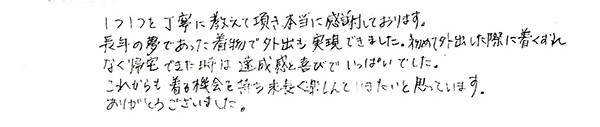 1つ1つを丁寧に教えて頂き本当に感謝しております。
長年の夢であった着物で外出も実現できました。初めて外出した際に着くずれ
なく帰宅できた時は達成感と喜びでいっぱいでした。
これからも着る機会を持ち末長く楽しんでいきたいと思っています。
ありがとうございました。